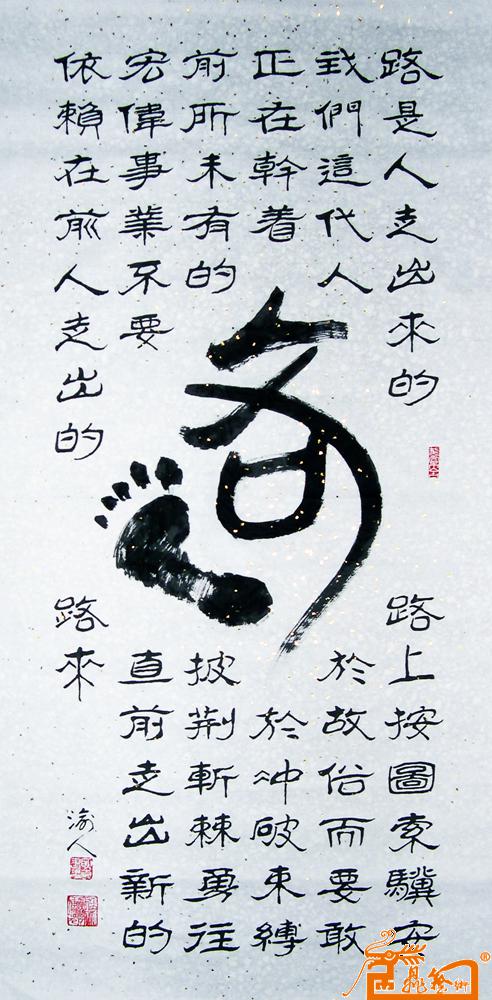 路
路是人走出來的
我們這代人
正在幹着
前所未有的
宏偉事業不要
依賴在前人走出的
路上按圖索驥安
於故俗而要敢
於沖破束縛
披荆斬棘勇往
直前走出新的
路來
渝人